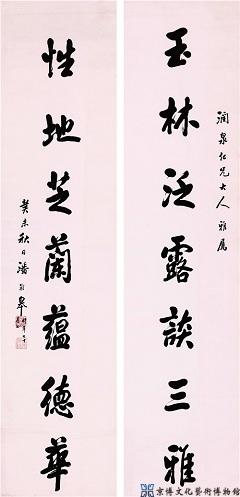 润泉仁兄大人雅属
玉林泛露談三雅
性地芝蘭蘊德華
癸未秋日潘龄皋
京博文化藝術博物館